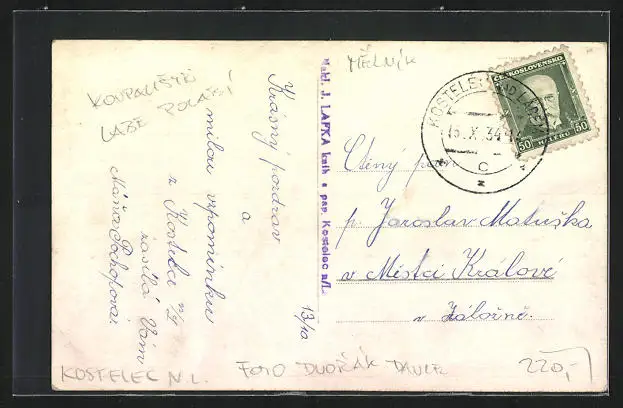 KOUPALIŠTĚ
LABE POLABÍ
MĚLNÍK
Krásný pozdrav
a
milou vzpomínku
z Kostelce n/L
zasílá Vám
13/10
Nakl. J. LAFKA knih. a pap. Kostelec n/L.
ČESKOSLOVENSKO
50 HALÉŘŮ 50
KOSTELEC NAD LABEM
13.X.34
C
Ctěný pan
p. Jaroslav Matuška
v Městci Králové
v Záložně.
KOSTELEC N.L.
FOTO DVOŘÁK
220,-